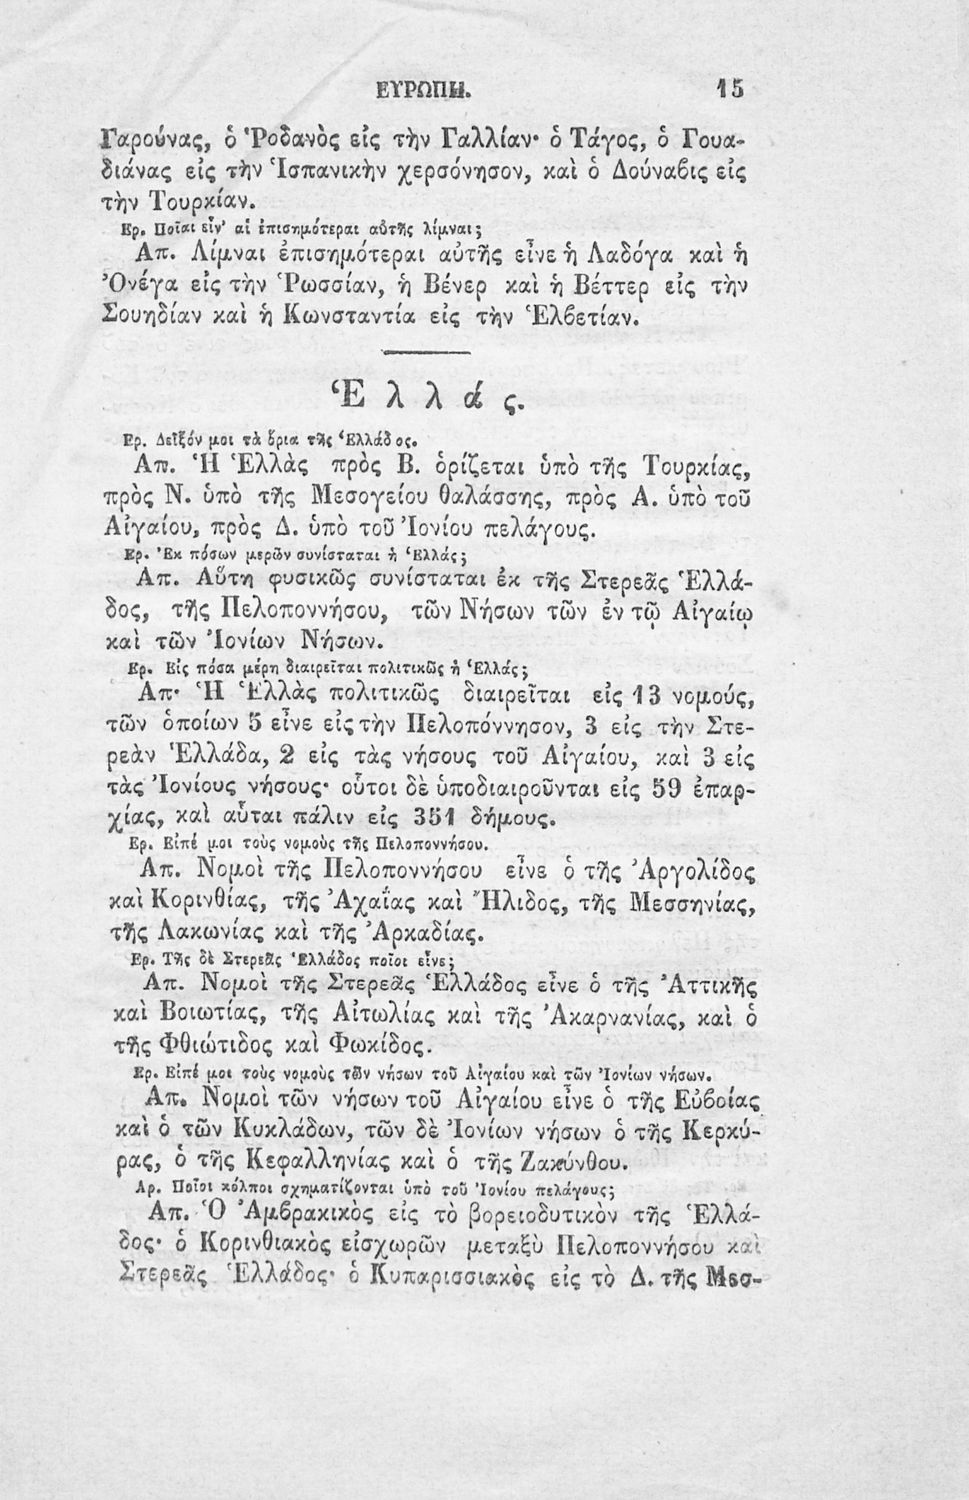 ΕΥΡΩΠΗ. 15
Γαρούνας, ὁ Ῥοδανὸς εἰς τὴν Γαλλίαν· ὁ Τάγος, ὁ Γουα-
διάνας εἰς τὴν Ἱσπανικὴν χερσόνησον, καὶ ὁ Δούναβις εἰς
τὴν Τουρκίαν.
Ερ. Ποῖαι εἶν' αἱ ἐπισημότεραι αὐτῆς λίμναι;
Απ. Λίμναι ἐπισημότεραι αὐτῆς εἶνε ἡ Λαδόγα καὶ ἡ
Ὀνέγα εἰς τὴν Ῥωσσίαν, ἡ Βένερ καὶ ἡ Βέττερ εἰς τὴν
Σουηδίαν καὶ ἡ Κωνσταντία εἰς τὴν Ἑλβετίαν.
Ἑλλάς.
Ερ. Δεῖξόν μοι τὰ ὅρια τῆς Ἑλλάδος.
Απ. Ἡ Ἑλλὰς πρὸς Β. ὁρίζεται ὑπὸ τῆς Τουρκίας,
πρὸς Ν. ὑπὸ τῆς Μεσογείου θαλάσσης, πρὸς Α. ὑπὸ τοῦ
Αἰγαίου, πρὸς Δ. ὑπὸ τοῦ Ἰονίου πελάγους.
Ερ. Ἐκ πόσων μερῶν συνίσταται ἡ Ἑλλάς;
Απ. Αὕτη φυσικῶς συνίσταται ἐκ τῆς Στερεᾶς Ἑλλά-
δος, τῆς Πελοποννήσου, τῶν Νήσων τῶν ἐν τῷ Αἰγαίῳ
καὶ τῶν Ἰονίων Νήσων.
Ερ. Εἰς πόσα μέρη διαιρεῖται πολιτικῶς ἡ Ἑλλάς;
Απ· Ἡ Ἑλλὰς πολιτικῶς διαιρεῖται εἰς 13 νομούς,
τῶν ὁποίων 5 εἶνε εἰς τὴν Πελοπόννησον, 3 εἰς τὴν Στε-
ρεὰν Ἑλλάδα, 2 εἰς τὰς νήσους τοῦ Αἰγαίου, καὶ 3 εἰς
τὰς Ἰονίους νήσους· οὗτοι δὲ ὑποδιαιροῦνται εἰς 59 ἐπαρ-
χίας, καὶ αὗται πάλιν εἰς 351 δήμους.
Ερ. Εἰπέ μοι τοὺς νομοὺς τῆς Πελοποννήσου.
Απ. Νομοὶ τῆς Πελοποννήσου εἶνε ὁ τῆς Ἀργολίδος
καὶ Κορινθίας, τῆς Ἀχαΐας καὶ Ἤλιδος, τῆς Μεσσηνίας,
τῆς Λακωνίας καὶ τῆς Ἀρκαδίας.
Ερ. Τῆς δὲ Στερεᾶς Ἑλλάδος ποῖοι εἶνε;
Απ. Νομοὶ τῆς Στερεᾶς Ἑλλάδος εἶνε ὁ τῆς Ἀττικῆς
καὶ Βοιωτίας, τῆς Αἰτωλίας καὶ τῆς Ἀκαρνανίας, καὶ ὁ
τῆς Φθιώτιδος καὶ Φωκίδος.
Ερ. Εἰπέ μοι τοὺς νομοὺς τῶν νήσων τοῦ Αἰγαίου καὶ τῶν Ἰονίων νήσων.
Απ. Νομοὶ τῶν νήσων τοῦ Αἰγαίου εἶνε ὁ τῆς Εὐβοίας
καὶ ὁ τῶν Κυκλάδων, τῶν δὲ Ἰονίων νήσων ὁ τῆς Κερκύ-
ρας, ὁ τῆς Κεφαλληνίας καὶ ὁ τῆς Ζακύνθου.
Αρ. Ποῖοι κόλποι σχηματίζονται ὑπὸ τοῦ Ἰονίου πελάγους;
Απ. Ὁ Ἀμβρακικὸς εἰς τὸ βορειοδυτικὸν τῆς Ἑλλά-
δος· ὁ Κορινθιακὸς εἰσχωρῶν μεταξὺ Πελοποννήσου καὶ
Στερεᾶς Ἑλλάδος· ὁ Κυπαρισσιακὸς εἰς τὸ Δ. τῆς Μεσ-